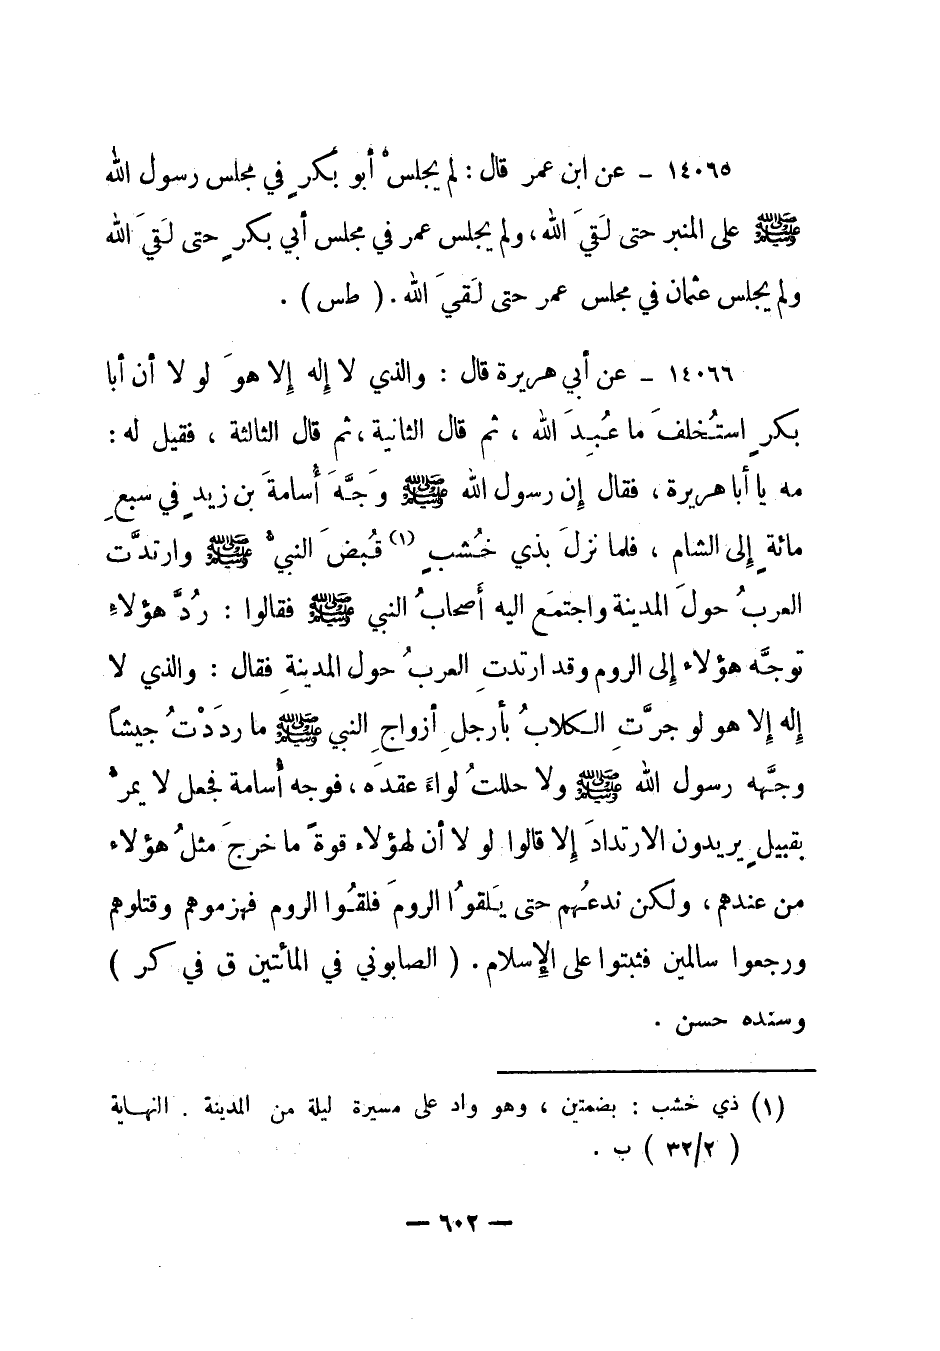 ١٤٠٦٥ - عن ابن عمر قال : لم يجلسْ أبو بكرٍ في مجلس رسول الله
ﷺ على المنبر حتى لَقيَ الله، ولم يجلس عمر في مجلس أبي بكرٍ حتى لَقيَ الله
ولم يجلس عثمان في مجلس عمر حتى لَقيَ الله . ( طس ) .
١٤٠٦٦ - عن أبي هريرة قال : والذي لا إله إلا هوَ لو لا أن أبا
بكرٍ استُخلفَ ما عُبِدَ الله ، ثم قال الثانية ، ثم قال الثالثة ، فقيل له :
مه يا أبا هريرة ، فقال إن رسول الله ﷺ وَجَّهَ أُسامةَ بن زيدٍ في سبعِ
مائةٍ إلى الشام ، فلما نزلَ بذي خُشبٍ (١) قُبضَ النبيُّ ﷺ وارتدَّت
العربُ حولَ المدينة واجتمَع اليه أَصحابُ النبي ﷺ فقالوا : رُدَّ هؤلاءِ
توجَّه هؤلاء إلى الروم وقد ارتدتِ العربُ حول المدينةِ فقال : والذي لا
إله إلا هو لو جرَّتِ الكلابُ بأرجلِ أزواجِ النبي ﷺ ما ردَدْتُ جيشاً
وجَّهه رسول الله ﷺ ولا حللتُ لواءً عقدَه ، فوجه أُسامة فجعل لا يمرُّ
بقبيلٍ يريدون الارتدادَ إلا قالوا لو لا أن لهؤلاء قوةً ما خرجَ مثلُ هؤلاء
من عندهم ، ولكن ندعُهم حتى يَلقوُا الرومَ فلقُوا الروم فهزموهم وقتلوهم
ورجعوا سالمين فثبتوا على الإسلام . ( الصابوني في المأتين ق في كر )
وسنده حسن .
(١) ذي خشب : بضمتين ، وهو واد على مسيرة ليلة من المدينة . النهاية
( ٣٢/٢ ) ب .
— ٦٠٢ —